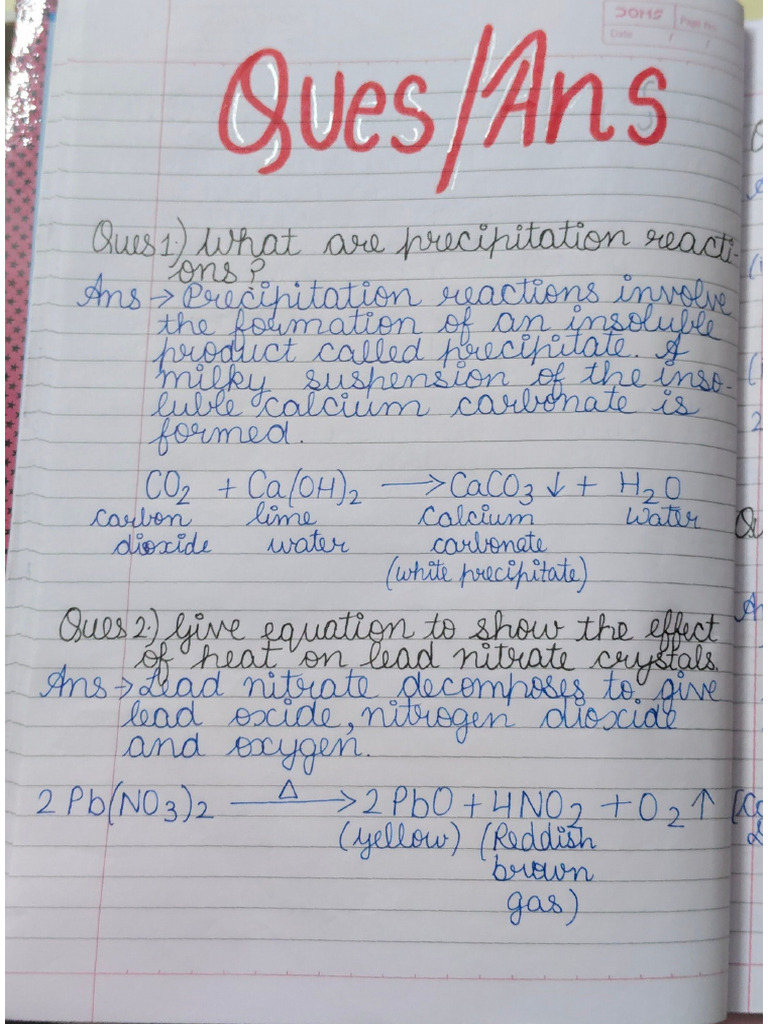 DOMS
Page No.
Date / /
Ques/Ans
Ques 1.) What are precipitation reacti-
ons?
Ans → Precipitation reactions involve
the formation of an insoluble
product called precipitate. A
milky suspension of the inso-
luble calcium carbonate is
formed.
CO2 + Ca(OH)2 → CaCO3 ↓ + H2O
carbon lime Calcium water
dioxide water carbonate
(white precipitate)
Ques 2.) Give equation to show the effect
of heat on lead nitrate crystals.
Ans → Lead nitrate decomposes to give
lead oxide, nitrogen dioxide
and oxygen.
2 Pb(NO3)2 —Δ→ 2 PbO + 4NO2 + O2 ↑
(yellow) (Reddish
brown
gas)